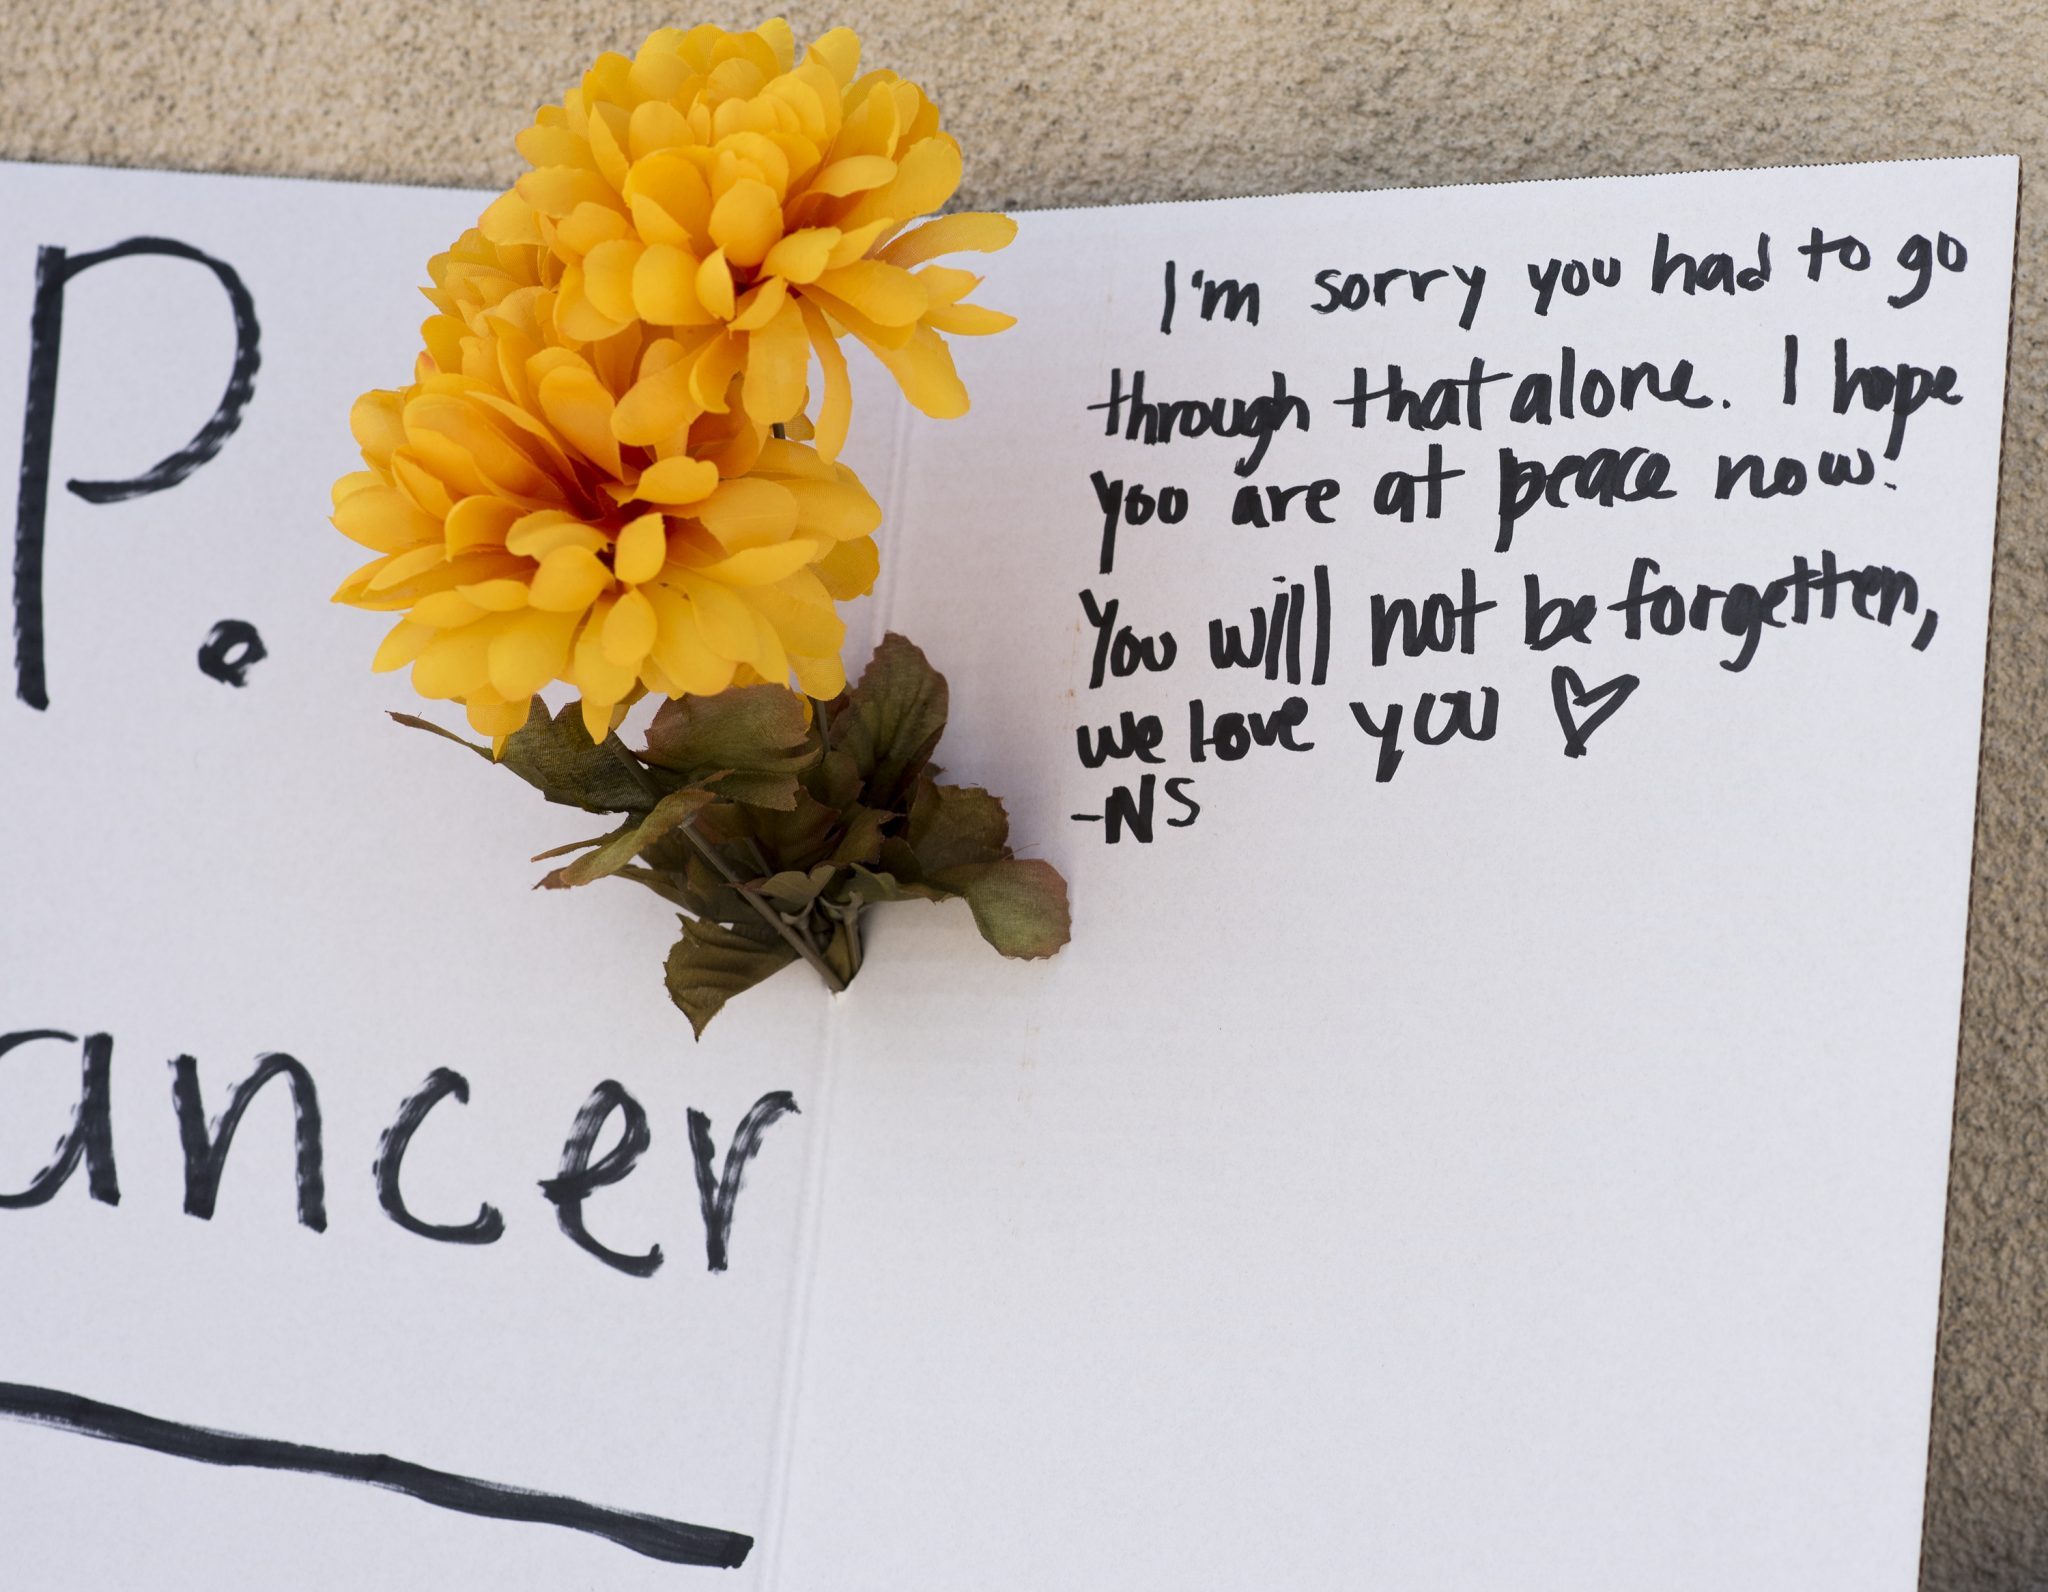 P.
ancer
I'm sorry you had to go
through that alone. I hope
you are at peace now!
You will not be forgetten,
we love you ♡
-NS